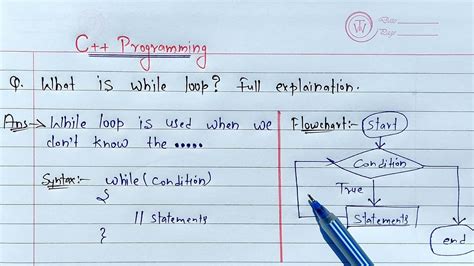 Date :
Page :
C++ Programming
Q. What is while loop? Full explaination.
Ans:-> While loop is used when we
don't know the .....
Syntax:- while(condition)
{
// Statements
}
Flowchart:- Start
Condition
True
Statements
end